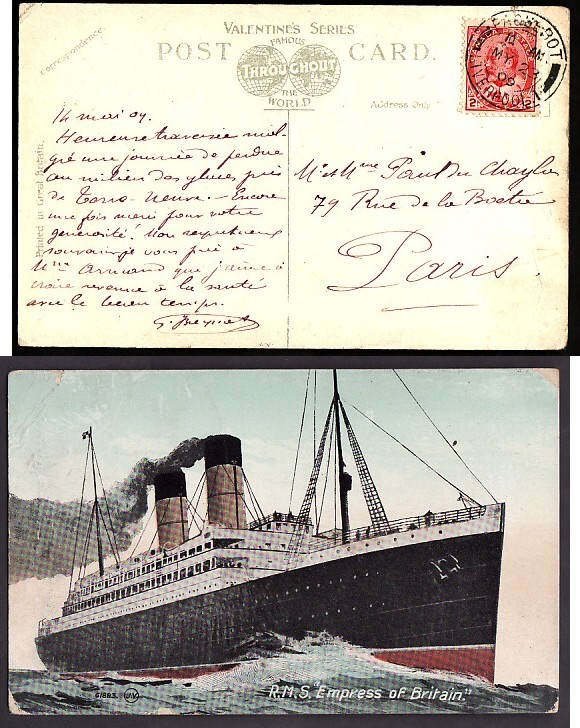 VALENTINE'S SERIES
POST CARD.
FAMOUS
THROUGHOUT
THE
WORLD
Correspondence.
Address Only
Printed in Great Britain.
PAQUEBOT
LIVERPOOL
14 mai 09.
Heureuse traversée mal-
gré une journée de perdue
au milieu des glaces près
de Terre-Neuve. Encore
une fois merci pour votre
générosité! Mon respectueux
souvenir je vous prie à
Mme Armand que j'aime à
croire revenue à la santé
avec le beau temps.
Mr et Mme Paul du Chayla
79 Rue de la Boétie
Paris.
R.M.S. "Empress of Britain."
(J.V)